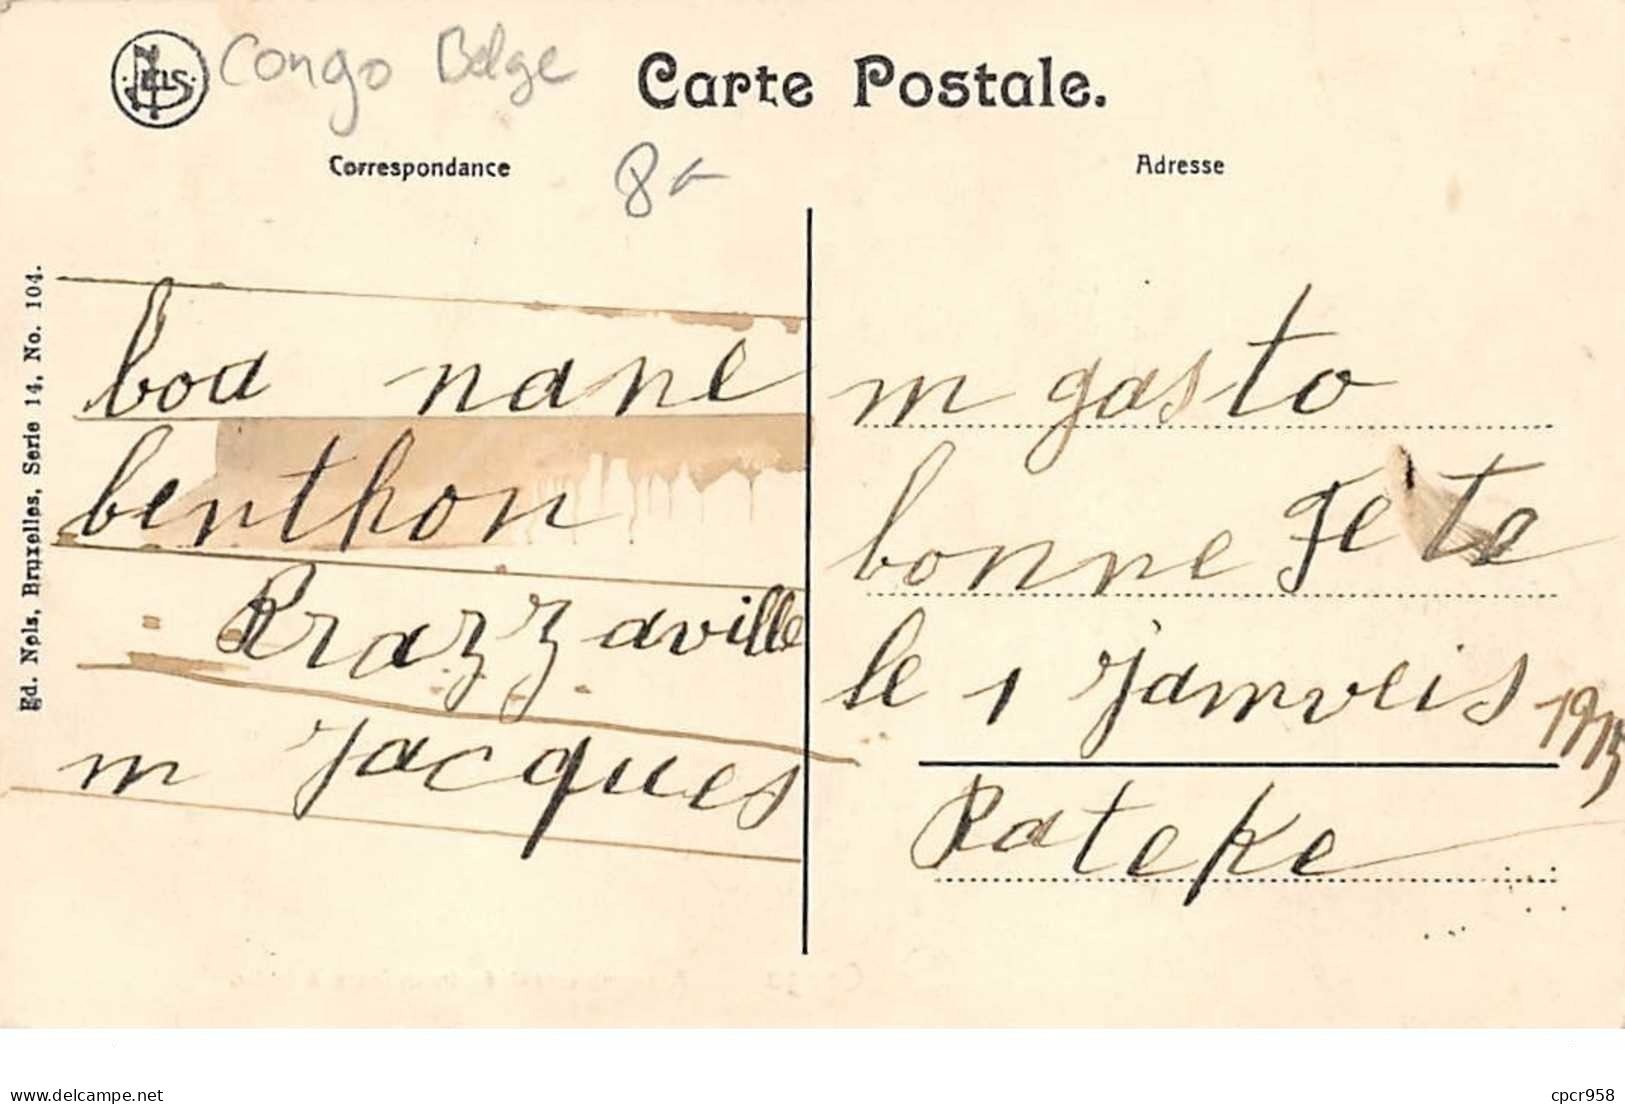 NELS
Congo Belge
Carte Postale.
Correspondance
8
Adresse
Ed. Nels, Bruxelles, Serie 14, No. 104.
boa nane
benthon
Brazzaville
m Jacques
m gasto
bonne Fête
le 1 Janveis 1913
Pateke
delcampe.net
cpcr958